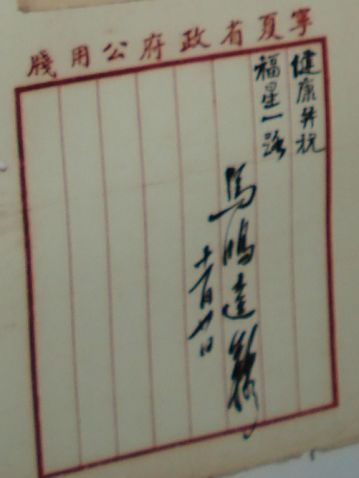 寧夏省政府公用牋
健康并祝
福星一路
馬鴻逵
十一月廿日